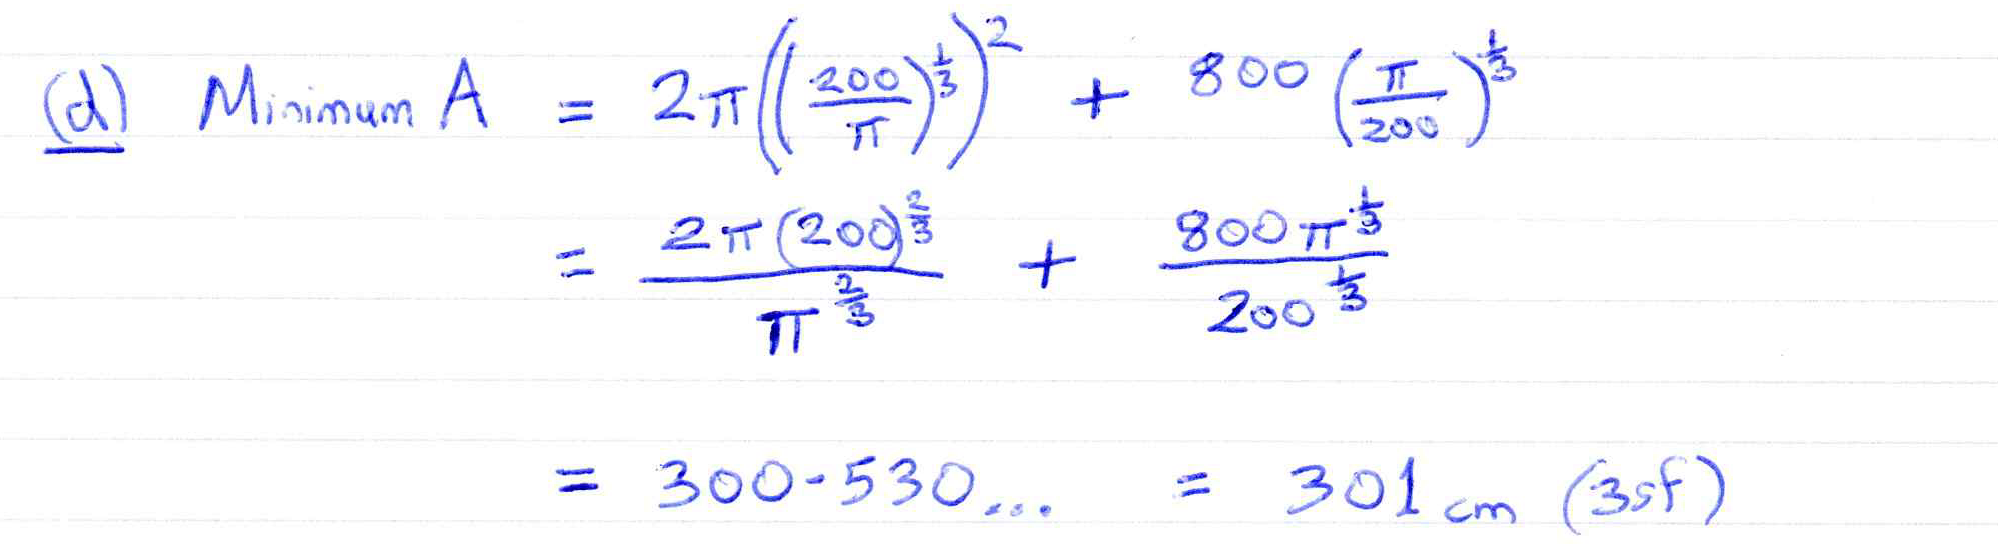 (d) Minimum A = 2π((200/π)^(1/3))^2 + 800 (π/200)^(1/3)
= 2π(200)^(2/3) / π^(2/3) + 800π^(1/3) / 200^(1/3)
= 300.530... = 301 cm (3sf)